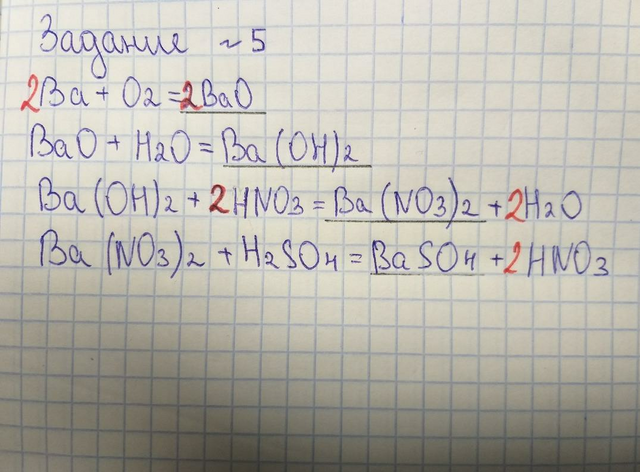 Задание ~ 5
2Ba + O2 = 2BaO
BaO + H2O = Ba(OH)2
Ba(OH)2 + 2HNO3 = Ba(NO3)2 + 2H2O
Ba(NO3)2 + H2SO4 = BaSO4 + 2HNO3